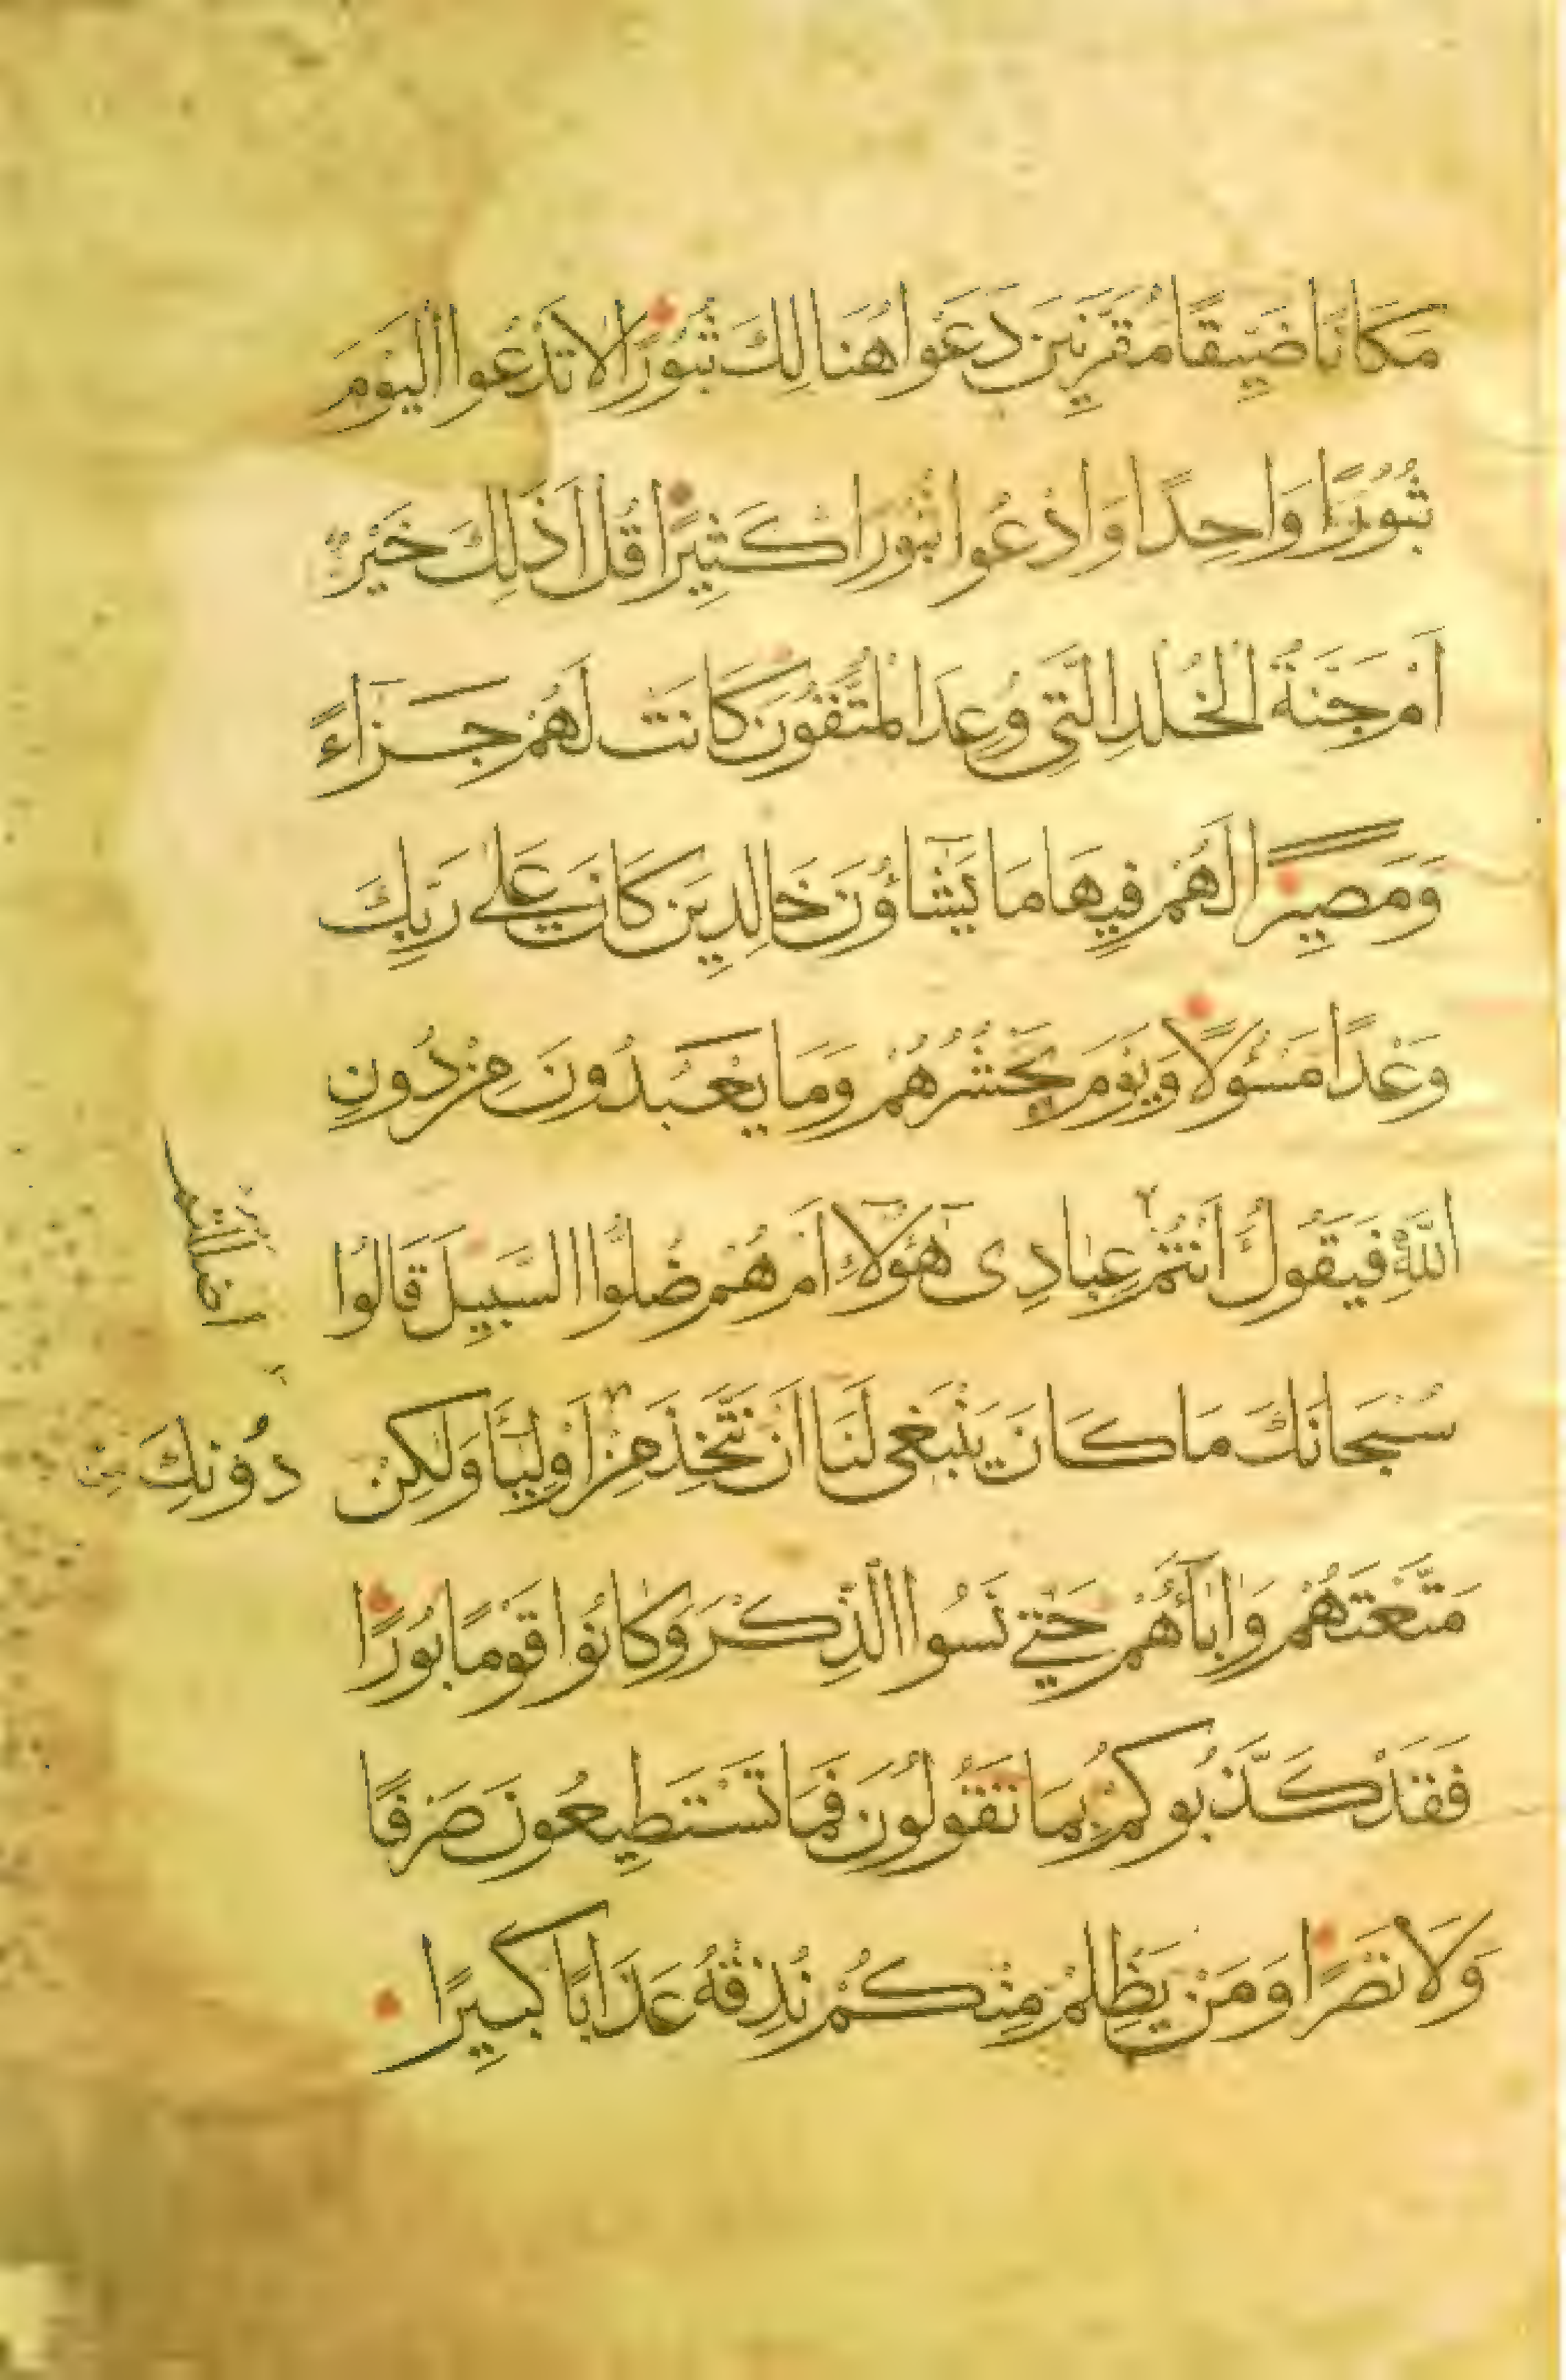 مَكَانًا ضَيِّقًا مُقَرَّنِينَ دَعَوا هُنَالِكَ ثُبُورًا لا تَدْعُوا الْيَوْمَ
ثُبُورًا وَاحِدًا وَادْعُوا ثُبُورًا كَثِيرًا قُلْ اَذٰلِكَ خَيْرٌ
اَمْ جَنَّةُ الْخُلْدِ الَّتِى وُعِدَ الْمُتَّقُونَ كَانَتْ لَهُمْ جَزَاءً
وَمَصِيرًا لَهُمْ فِيهَا مَا يَشَاؤُنَ خَالِدِينَ كَانَ عَلٰى رَبِّكَ
وَعْدًا مَسْؤُلًا وَيَوْمَ يَحْشُرُهُمْ وَمَا يَعْبُدُونَ مِنْ دُونِ
اللَّهِ فَيَقُولُ اَنْتُمْ عِبَادِى هٰؤُلاءِ اَمْ هُمْ ضَلُّوا السَّبِيلَ قَالُوا
سُبْحَانَكَ مَا كَانَ يَنْبَغِى لَنَا اَنْ نَتَّخِذَ مِنْ اَوْلِيَاءَ وَلٰكِنْ
دُونِكَ مِنْ
مَتَّعْتَهُمْ وَاٰبَاءَهُمْ حَتّٰى نَسُوا الذِّكْرَ وَكَانُوا قَوْمًا بُورًا
فَقَدْ كَذَّبُوكُمْ بِمَا تَقُولُونَ فَمَا تَسْتَطِيعُونَ صَرْفًا
وَلَا نَصْرًا وَمَنْ يَظْلِمْ مِنْكُمْ نُذِقْهُ عَذَابًا كَبِيرًا